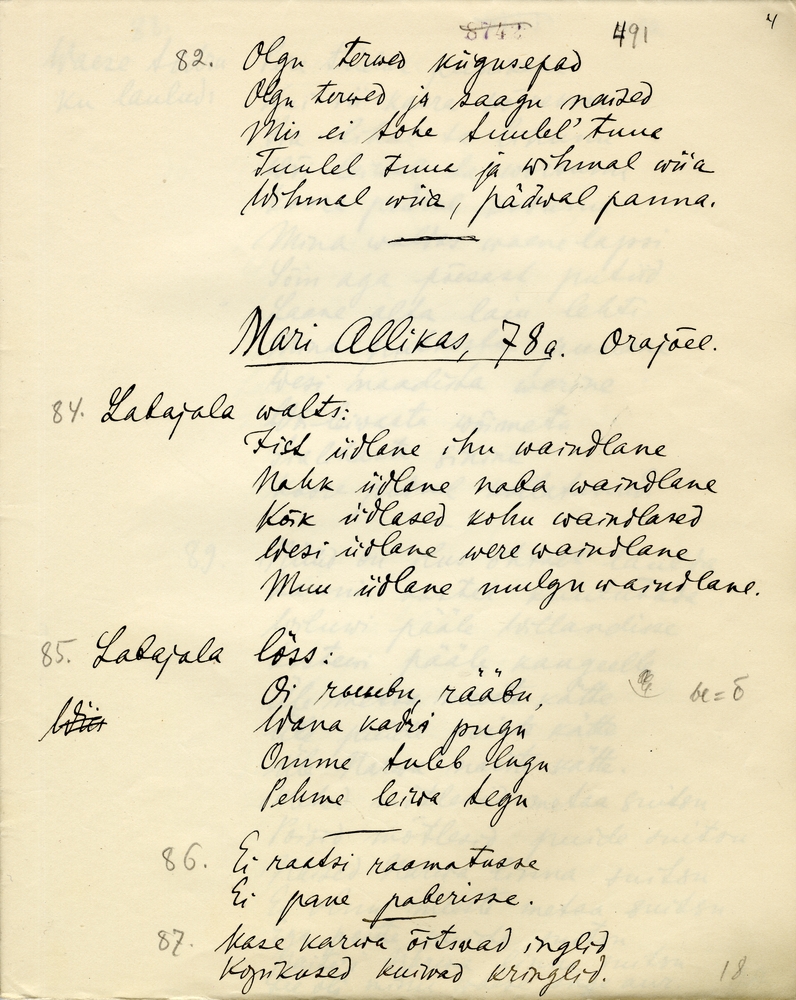 491
4
82. Olgu terwed kiigusepad
Olgu terwed ja saagu naised
Mis ei tohe tuulel' tuua
Tuulel tuua ja wihmal wiia
Wihmal wiia, pääwal panna.
Mari Allikas, 78a. Orajõel.
84. Labajala walts:
Fist üdlane ihu waindlane
Nahk üdlane naba waindlane
Kõik üdlased kohu waindlased
Wesi üdlane were waindlane
Muu üdlane mulgu waindlane.
85. Labajala lõss:
Oi rääbu,
Wana kadri pugu
Omme tuleb lugu
Pehme leiwa tegu
86. Ei raatsi raamatusse
Ei pane paberisse.
87. Kase karwa õitswad inglid
Kopikused kuiwad kringlid.
18